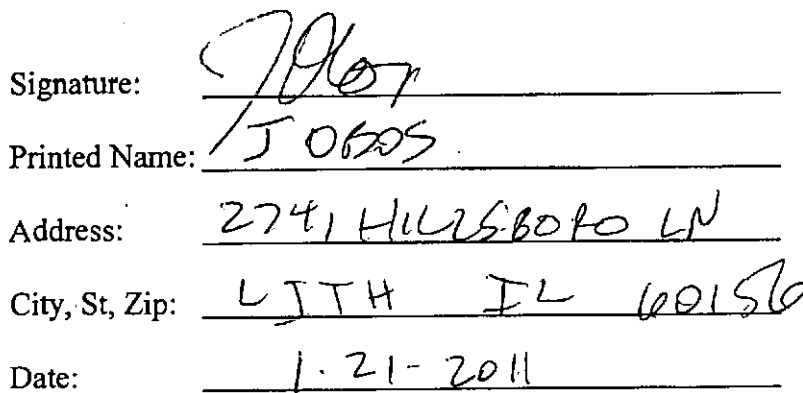 Signature:
Printed Name: J OBOS
Address: 2741 HILLSBORO LN
City, St, Zip: LITH IL 60156
Date: 1.21-2011